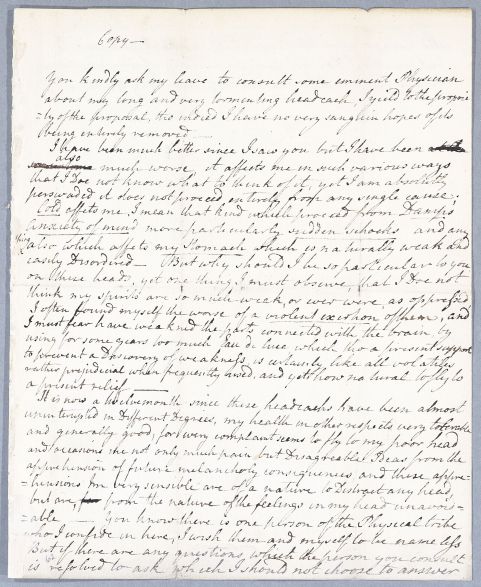 Copy—
You kindly ask my leave to consult some eminent Physician
about my long and very tormenting headach I yield to the proprie
=ty of the proposal, tho indeed I have no very sanguin hopes of its
being entirely removed
I have been much better since I saw you but I have been
also
much worse, it affects me in such various ways
that I do not know what to think of it, yet I am absolutly
perswaded it does not proceed entirely from any single cause;
Cold affects me, I mean that kind which proceed from Damps
anxiety of mind more particularly sudden shocks and any
thing
also which affects my Stomach which is naturally weak and
easily Disordred — But why should I be so particular to you
on these heads, yet one thing I must observe, that I Do not
think my spirits are so much week, or ever were, as oppressed
I often found myself the worse of a violent exertion of them, and
I must fear have weakned the parts connected with the brain by
using for some years too much Eau de luce which tho a present support
to prevent a Discovery of weakness, is like all volatiles
rather prejudicial when frequently used, and yet how natural to fly to
a present relief
It is now a twelvemonth since these headachs have been almost
uninterupted in Different Degrees, my health in other respects very tolerable
and generally good, for every complaint seems to fly to my poor head
and occasions me not only much pain but Disagreeable Ideas from the
apprehension of future melancholy consequences and these appre=
=hensions I'm very sensible are of a nature to Distract any head,
but are, from the nature of the feelings in my head unavoid=
=able — You know there is one person of the Physical tribe
who I confide in here, I wish them and myself to be name less
But if there are any questions, which the person you consult
is resolved to ask which I should not choose to answer